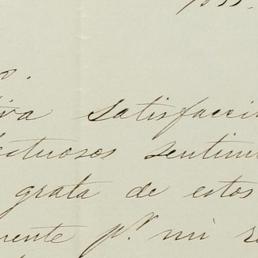 iva satisfacci
ectuosos sentim
grata de estos
mente p.r mi